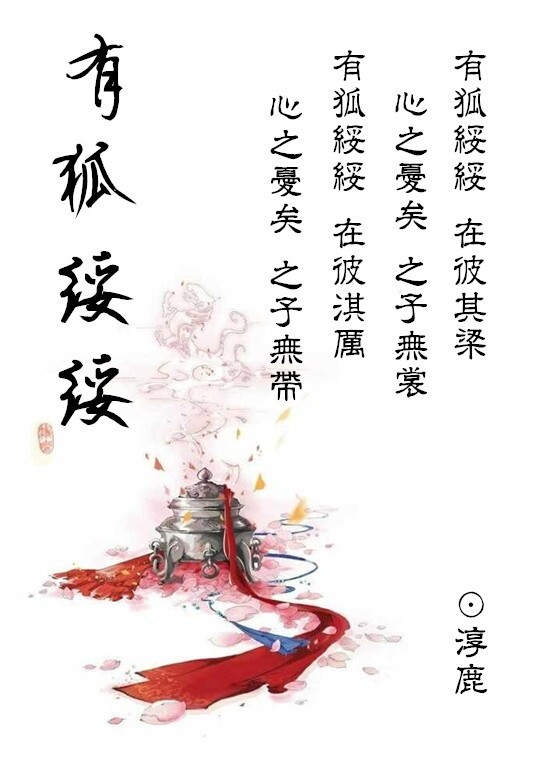 有狐綏綏 在彼其梁
心之憂矣 之子無裳
有狐綏綏 在彼淇厲
心之憂矣 之子無帶
有狐綏綏
⊙淳鹿